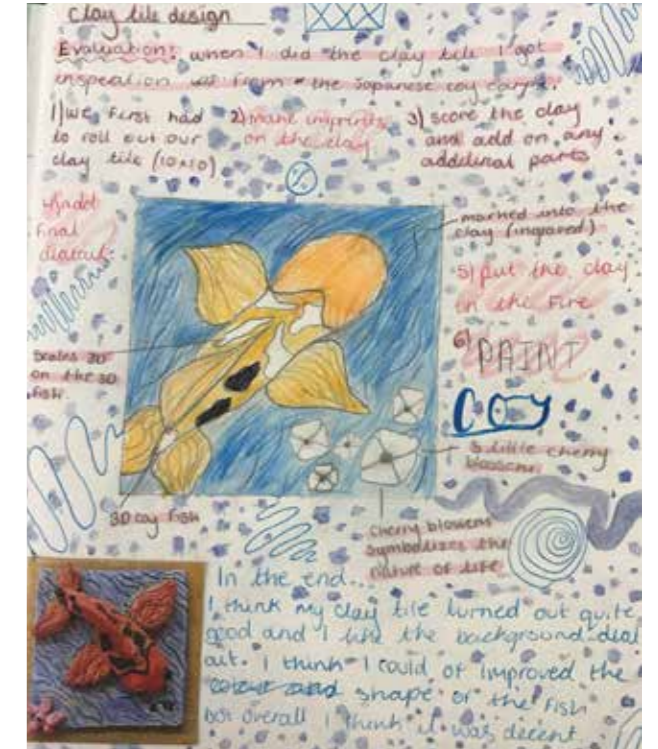 Clay tile design
Evaluation: when I did the clay tile I got
inspeation from the Japanese coy carps.
1) we first had
to roll out our
clay tile (10x10)
2) make imprints
on the clay
3) score the clay
and add on any
addelinal parts
4) add
final
diatails:
marked into the
clay (ingraved)
5) put the clay
in the fire
6) PAINT
COY
Scales 2D
on the 3D
fish.
5 little cherry
blossems.
3D coy fish
cherry blossems
symbolizes the
nature of life
In the end...
I think my clay tile turned out quite
good and I like the background
out. I think I could of improved the
colour and shape of the fish
but overall I think it was decent.